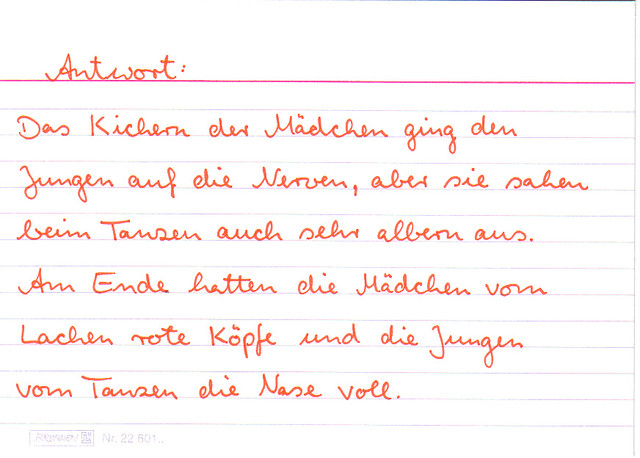 Antwort:
Das Kichern der Mädchen ging den
Jungen auf die Nerven, aber sie sahen
beim Tanzen auch sehr albern aus.
Am Ende hatten die Mädchen vom
Lachen rote Köpfe und die Jungen
vom Tanzen die Nase voll.
BRUNNEN Nr. 22 601..